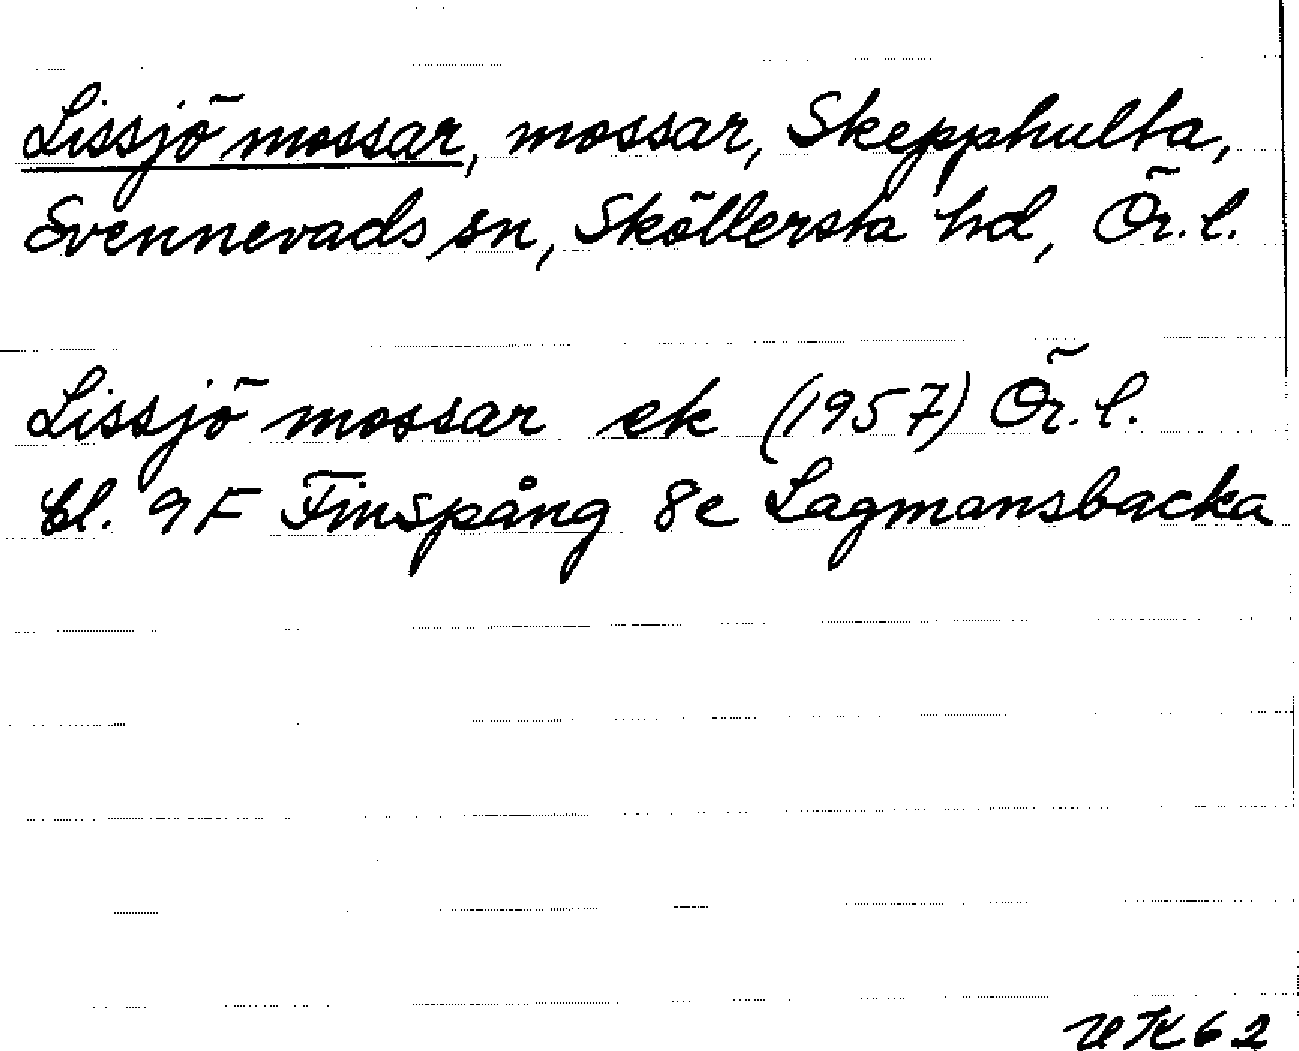 Lissjö mossar, mossar, Skepphulta,
Svennevads sn, Sköllersta hd, Ör. l.
Lissjö mossar ek (1957) Ör. l.
bl. 9F Finspång 8e Lagmansbacka
62